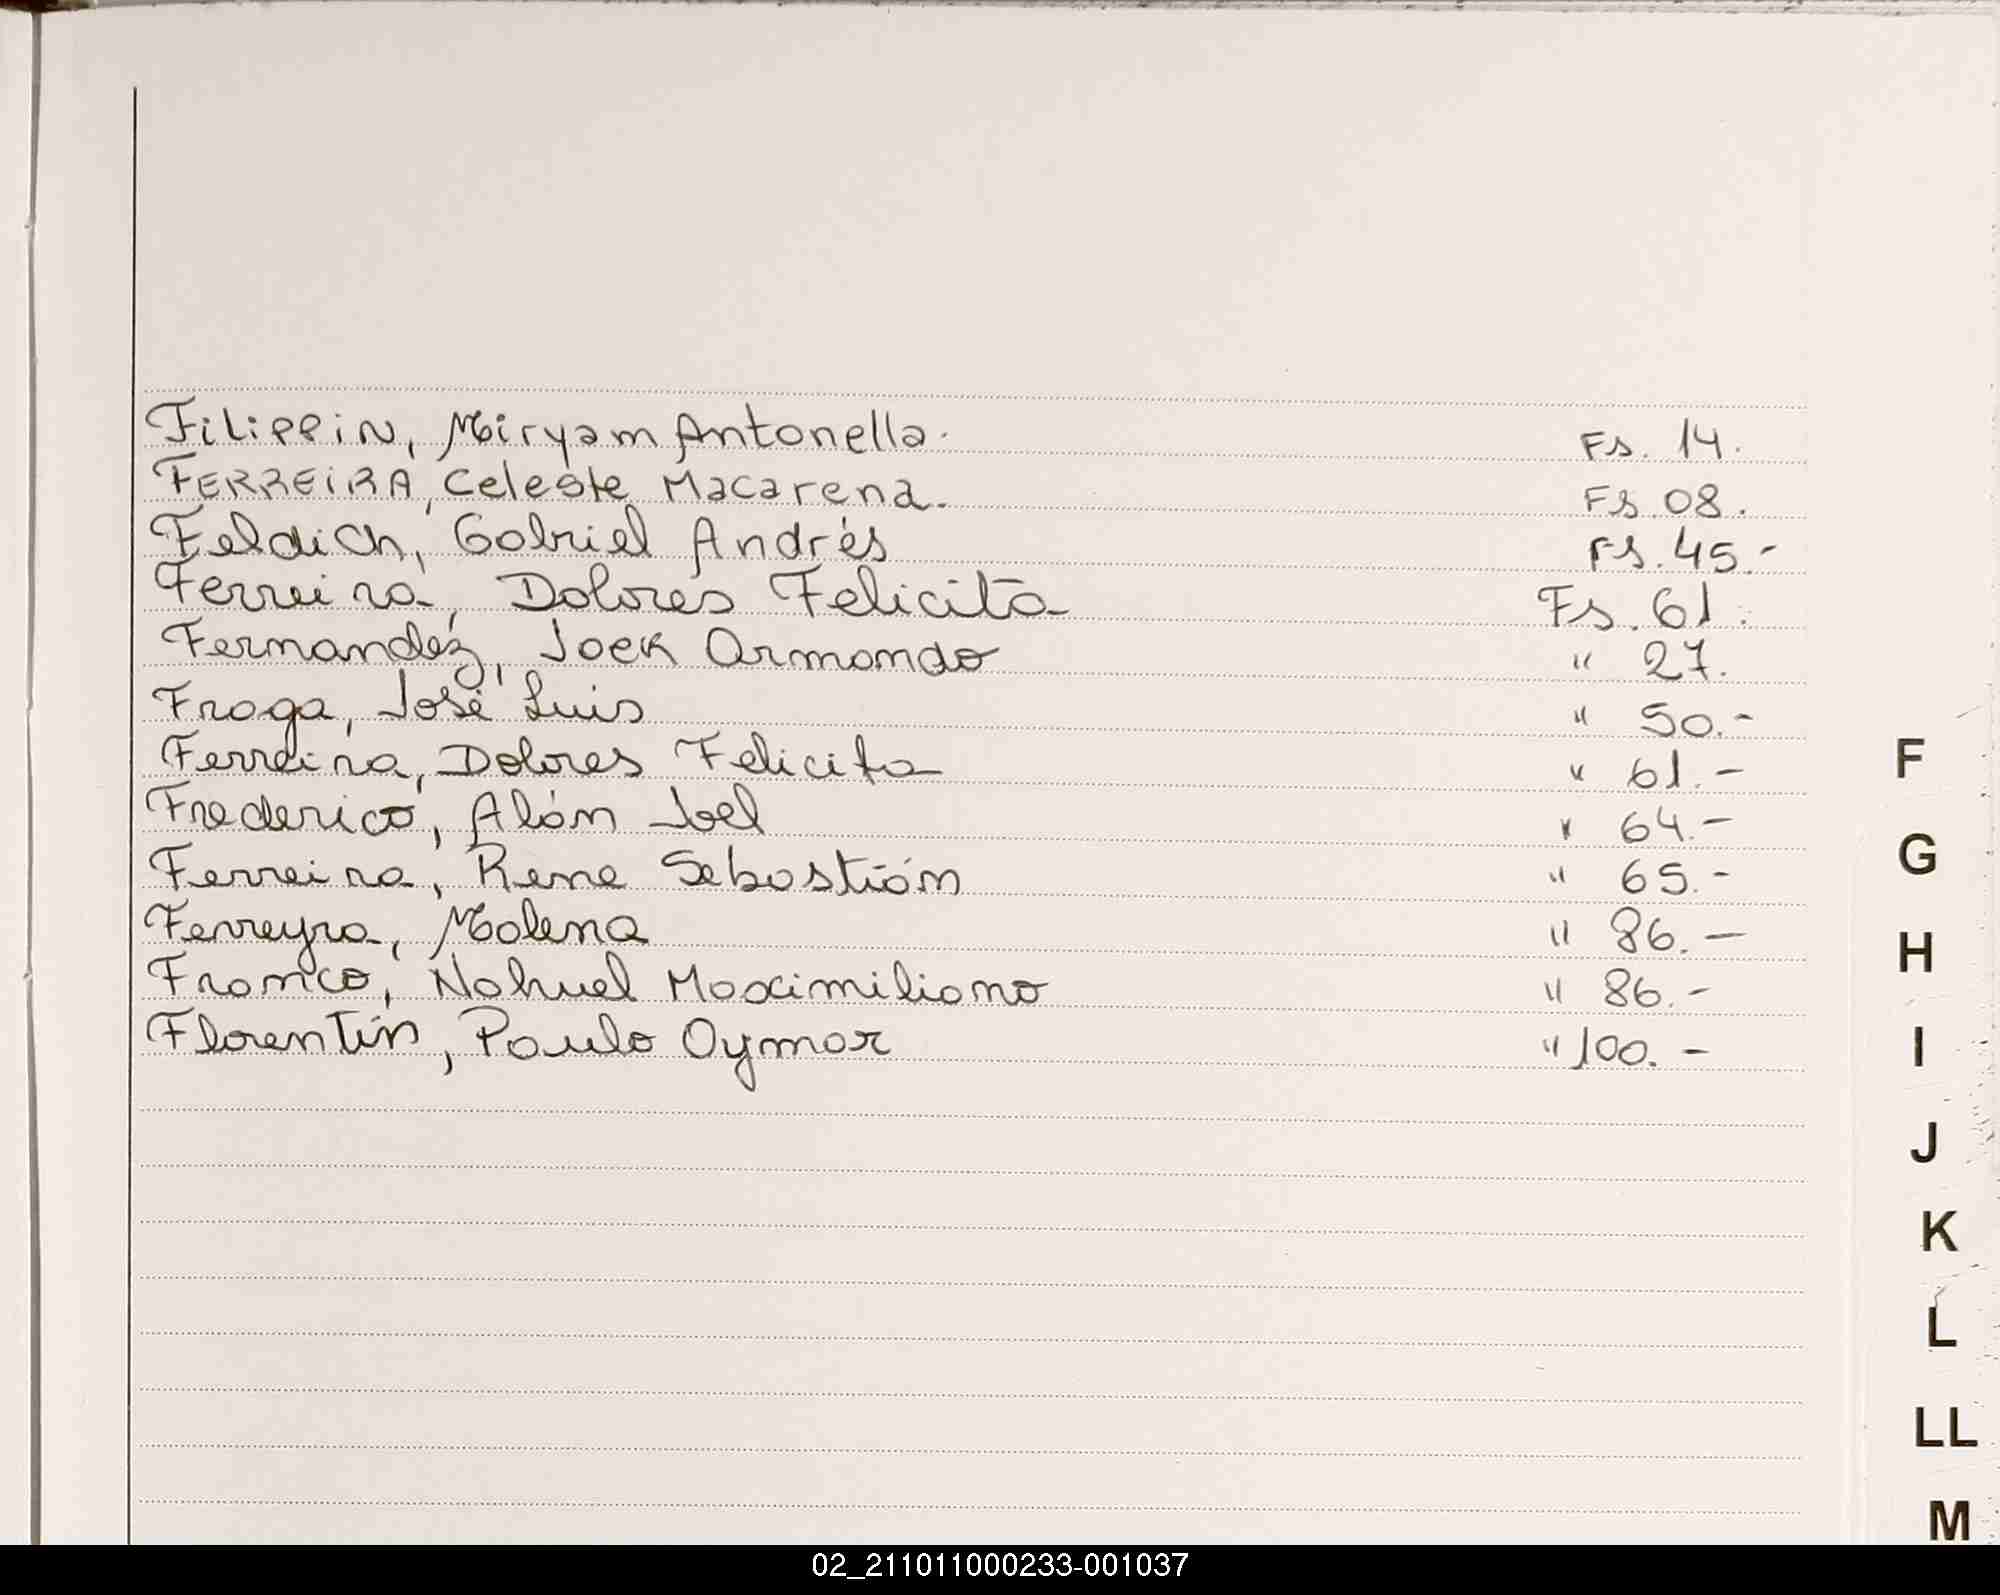 Filippin, Miryam Antonella. Fs. 14.
FERREIRA, Celeste Macarena. Fs. 08.
Feldich, Gabriel Andrés Fs. 45.-
Ferreira, Dolores Felicita Fs. 61.
Fernandez, Joek Armando " 27.
Fraga, José Luis " 50.-
Ferreira, Dolores Felicita " 61.-
Frederico, Alán Joel " 64.-
Ferreira, Rene Sebastián " 65.-
Ferreyra, Malena " 86.-
Franco, Nahuel Maximiliano " 86.-
Florentín, Paulo Oymar " 100.-
F
G
H
I
J
K
L
LL
M
02_211011000233-001037